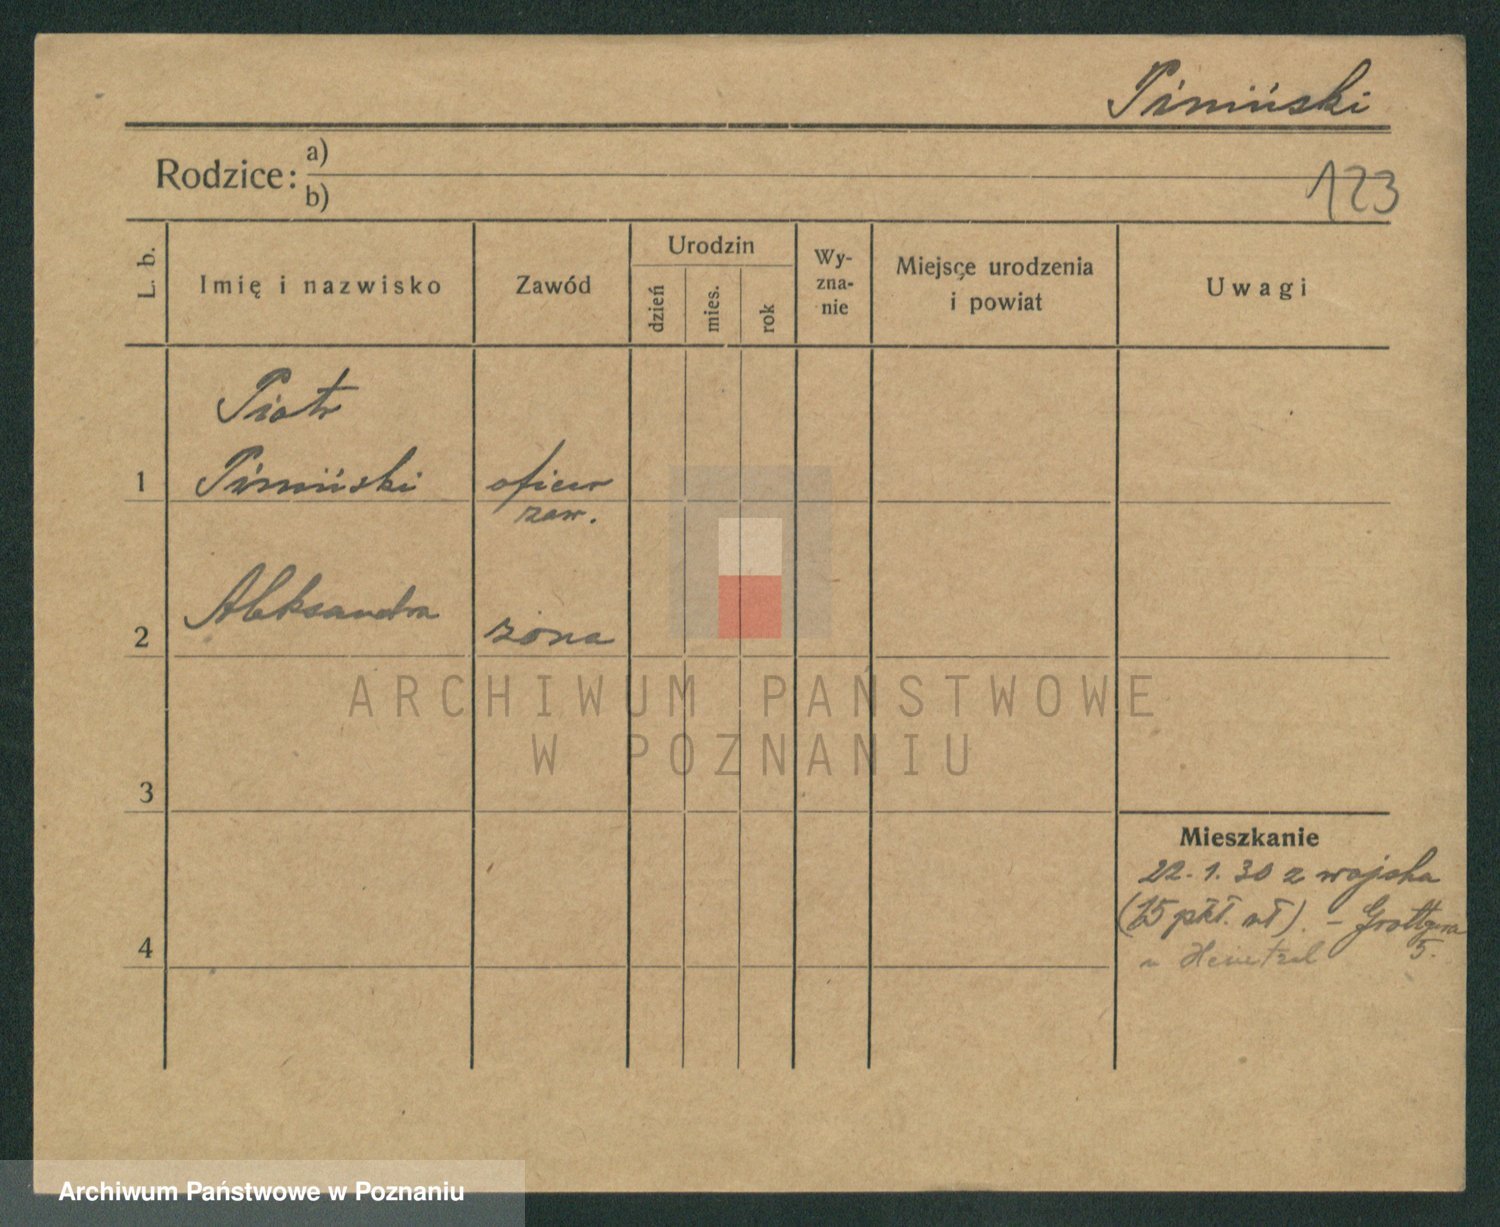 Piniński
Rodzice: a)
b)
123
L. b.
Imię i nazwisko
Zawód
Urodzin
dzień
mies.
rok
Wy-
zna-
nie
Miejsce urodzenia
i powiat
Uwagi
Piotr
1 Piniński oficer
zaw.
2 Aleksandra żona
3
Mieszkanie
22.1.30 z wojska
(15 pkł. wł). - Grottgera
5.
4
ARCHIWUM PAŃSTWOWE
W POZNANIU
Archiwum Państwowe w Poznaniu